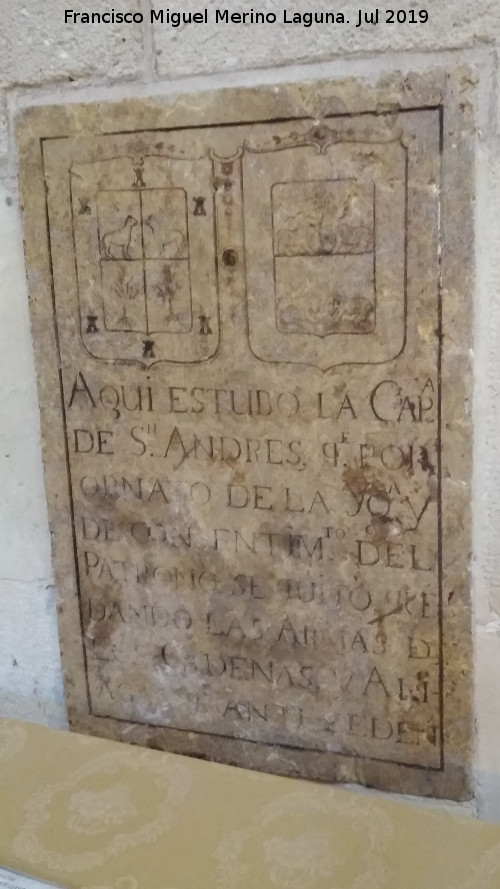 Francisco Miguel Merino Laguna. Jul 2019
AQUI ESTUBO LA CAP.A
DE S.N ANDRES, q.E POR
ORNATO DE LA
DE CONSENTIM.TO DEL
PATRONO SE QUITO, QUE
DANDO LAS ARMAS D
CADENAS, Y ALI-
q.E ANTEZEDEN